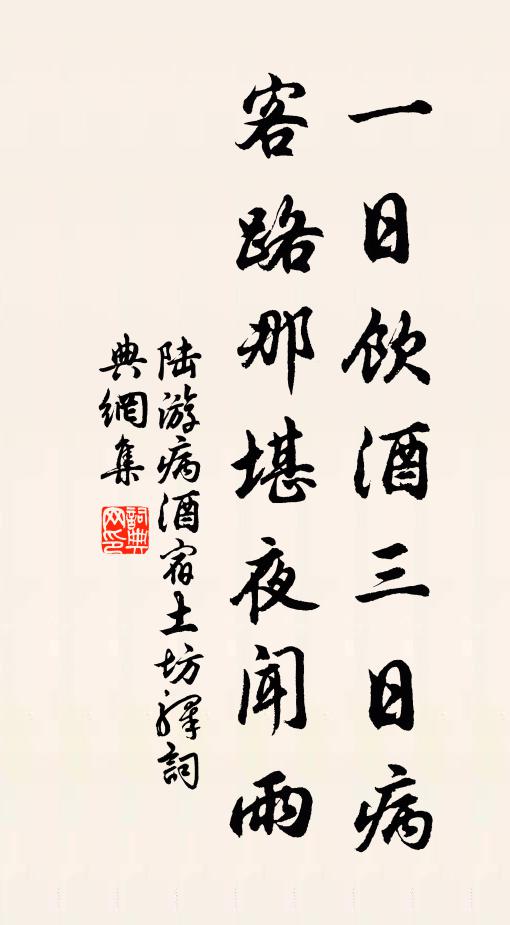 一日飲酒三日病
客路那堪夜聞雨
陆游病酒宿土坊驛詞
典網集
詞典
网印